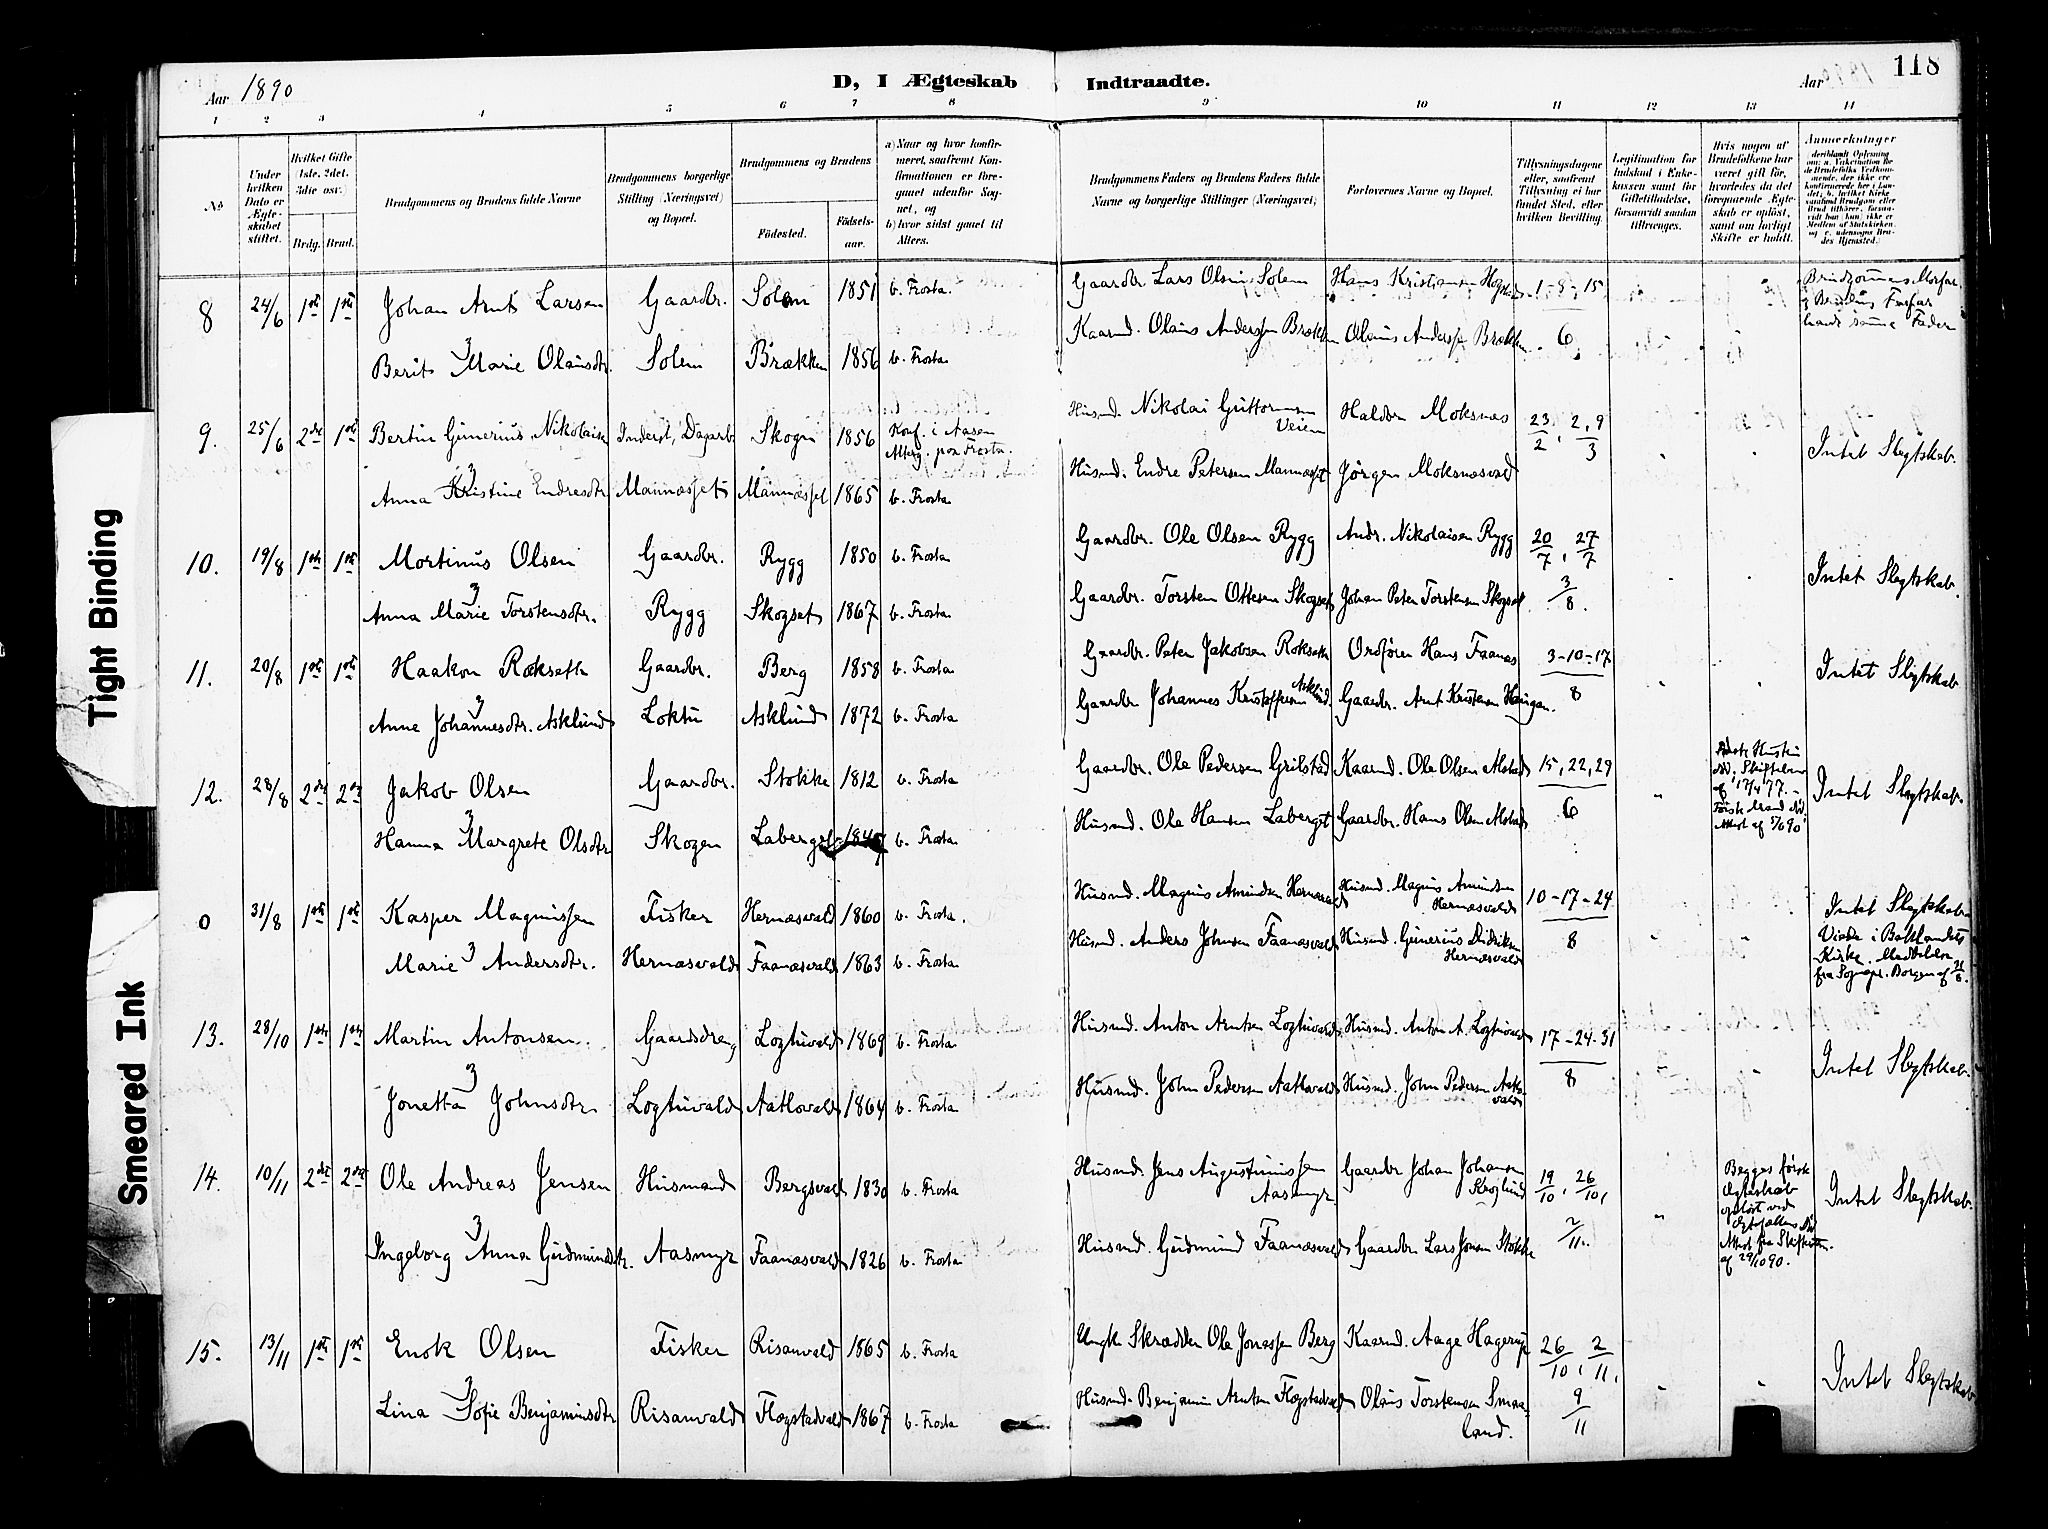 Aar 1890
D, I Ægteskab
Indtraadte.
Aar
118
1 2 3 4 5 6 7 8 9 10 11 12 13 14
No
Under hvilken Dato er Ægteskabet stiftet.
Hvilket Gifte (1ste. 2det. 3die osv.)
Brdg. Brud.
Brudgommens og Brudens fulde Navne
Brudgommens borgerlige Stilling (Næringsvei) og Bopæl.
Brudgommens og Brudens
Födested.
Födsels-aar.
a) Naar og hvor konfirmeret, saafremt Konfirmationen er foregaaet udenfor Sognet, og
b) hvor sidst gaaet til Alters.
Brudgommens Faders og Brudens Faders fulde Navne og borgerlige Stillinger (Næringsvei)
Forlovernes Navne og Bopæl.
Tillysningsdagene eller, saafremt Tillysning ei har fundet Sted, efter hvilken Bevilling.
Legitimation for Indskud i Enkekassen samt for Giftetilladelse, forsaavidt saadan tiltrænges.
Hvis nogen af Brudefolkene har været gift för, hvorledes da det foregaaende Ægteskab er oplöst, samt om lovligt Skifte er holdt.
Anmærkninger
8 24/6 1ste 1ste Johan Arnt Larsen Gaardbr. Solem 1851 b. Frosta. Gaardbr Lars Olsen Solem Hans Kristiansen Hogstad 1-8-15 Brudgommens Morfar
& Brudens Farfar
havde samme Fader
Berit Marie Olausdtr. Solem Brækken 1856 b. Frosta Kaarmd. Olaus Anderssen Brækken Olaus Anderss. Brækken 6
9. 25/6 2det 1ste Bertin Gunerius Nikolaisen Inderst, Dagarb. Skogn 1856 Konf. i Aasen
Alterg. paa Frosta. Husmd. Nikolai Guttormsen Veiem Haldor Moksnæs 23/2, 2, 9/3 Intet Slegtskab.
Anna Kristine Endresdtr. Mannæsset Mannæsset 1865 b. Frosta Husmd. Endre Petersen Mannæsset Jørgen Moksnæsvald
10. 19/8 1ste 1ste Mortinus Olsen Gaardbr. Rygg 1850 b. Frosta Gaardbr. Ole Olsen Rygg Andr. Nikolaisen Rygg 20/7, 27/7 Intet Slegtskab.
Anna Marie Torstensdtr. Rygg Skogset 1867 b. Frosta Gaardbr. Torsten Ottesen Skogset Johan Peter Torstensen Skogset 3/8.
11. 20/8 1ste 1ste Haakon Rokseth Gaardbr. Berg 1858 b. Frosta Gaardbr. Peter Jakobsen Rokseth Ordfören Hans Faanæs 3-10-17 Intet Slegtskab
Anne Johannesdtr. Asklund Loktu Asklund 1872 b. Frosta Gaardbr Johannes Kristoffersen Asklund. Gaardbr. Arnt Kristensen Haugan. 8
12. 28/8 2det 2det Jakob Olsen Gaardbr. Stokke 1812 b. Frosta Gaardbr. Ole Pedersen Grilstad Kaarmd. Ole Olsen Alstad 15, 22, 29 Intet Slegtskab.
Hanna Margrete Olsdtr Skogen Laberget b. Frosta Husmd. Ole Hansen Laberget Gaardbr. Hans Olsen Alstad 6
0 31/8 1ste 1ste Kasper Magnussen Fisker Hernæsvald 1860 b. Frosta. Husmd. Magnus Amundsen Hernæsvald Husmd. Magnus Amundsen Hernæsvald 10-17-24 Intet Slegtskab
Viede i Baklandets
Kirke. Meddelelse
fra Sognepr. Borgen af
Marie Andersdtr. Hernæsvald Faanæsvald 1863 b. Frosta Husmd. Anders Johnsen Faanæsvald Husmd. Gunerius Didriksen Hernæsvald 8
13. 28/10 1ste 1ste Martin Antonsen. Gaardsdreng Logtuvald 1869 b. Frosta Husmd. Anton Arntsen Logtuvald Husmd. Anton A. Logtuvald 17-24-31 Intet Slegtskab.
Jonetta Johnsdtr Logtuvald Aatlovald 1864 b. Frosta Husmd. John Pedersen Aatlovald Husmd. John Pedersen Aatlovald 8
14. 10/11 2det 2det Ole Andreas Jensen Husmand Bergsvald 1830 b. Frosta Husmd. Jens Augustinussen Aasmyr Gaardbr Johan Johansen Kroglund 19/10, 26/10, Begges første
Ægteskab
opløst ved
Ægtefællens Död
Attest fra Skifteretten.
af 29/10 90. Intet Slegtskab.
Ingeborg Anna Gudmundsdtr. Aasmyr Faanæsvald 1826 b. Frosta Husmd. Gudmund Faanæsvald Gaardbr Lars Jonsen Stokke 2/11.
15. 13/11 1ste 1ste Enok Olsen Fisker Risanvald 1865 b. Frosta Ungk. Skrædder Ole Jonassen Berg Kaarmd. Aage Hagerup 26/10, 2/11, Intet Slegtskab
Lina Sofie Benjaminsdtr Risanvald Flogstadvald 1867 b. Frosta Husmd. Benjamin Arntsen Flogstadvald Olaus Torstensen Smaaland. 9/11
Tight Binding
Smeared Ink